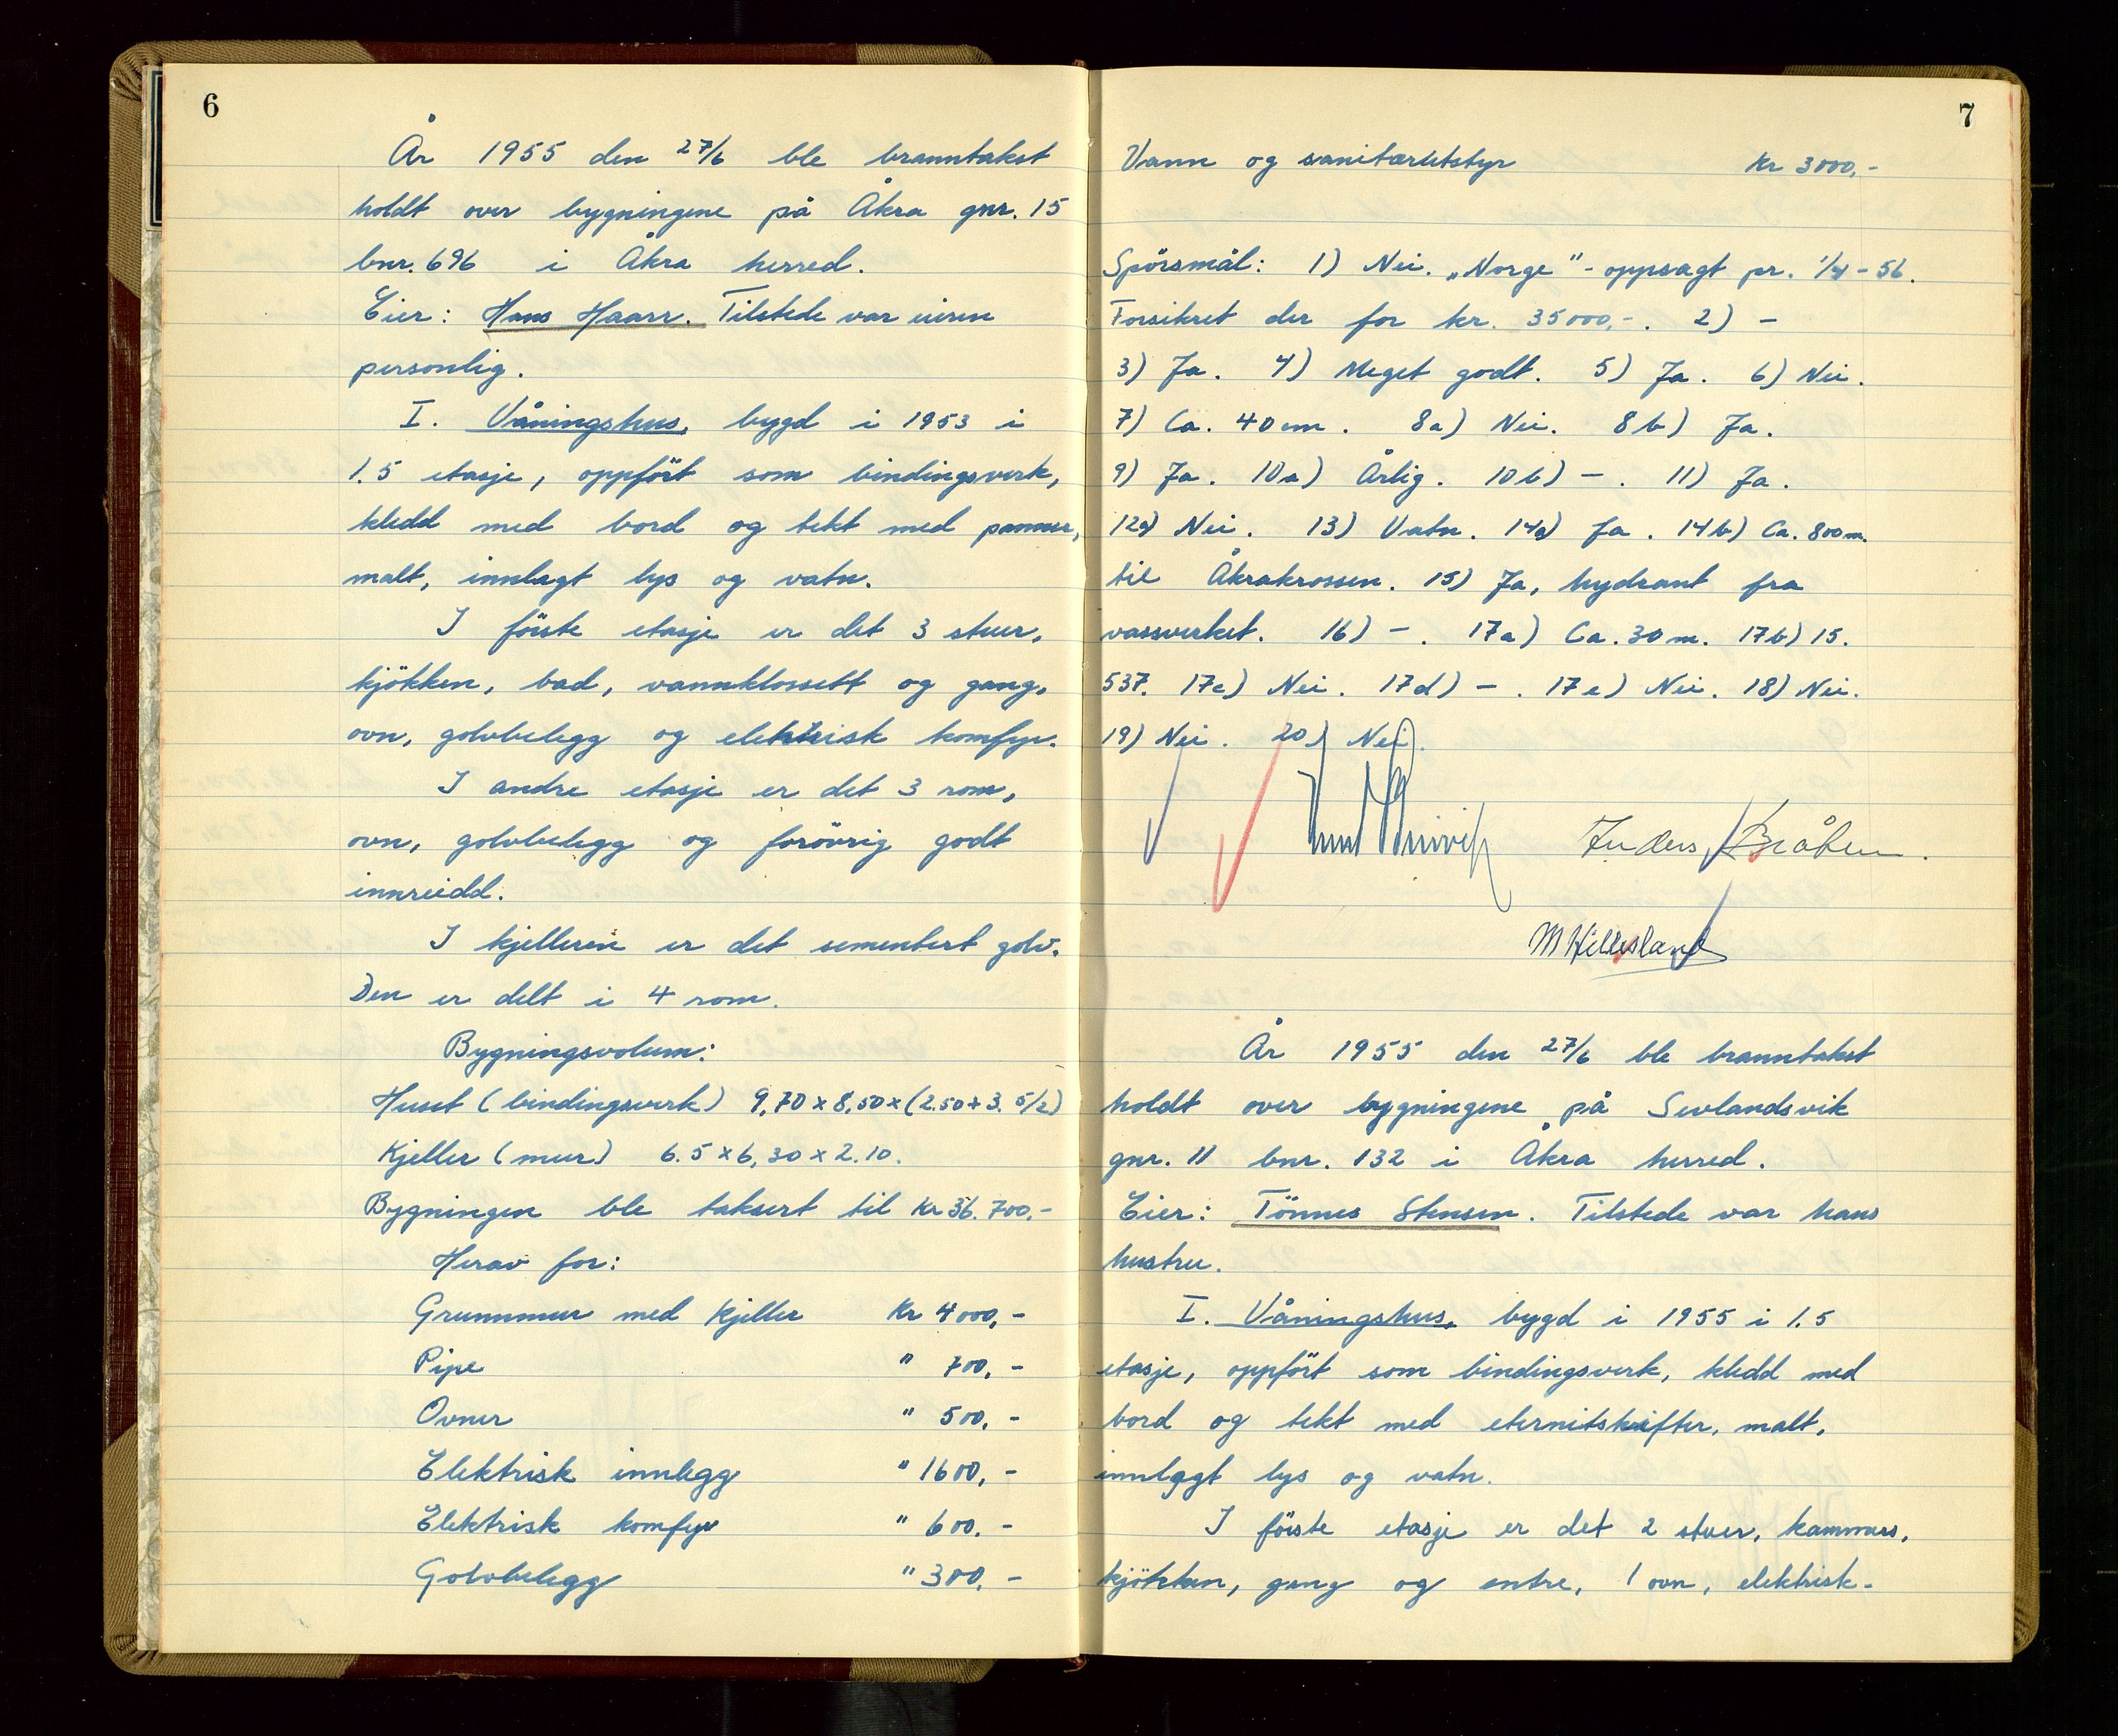 6
År 1955 den 27/6 ble branntakst
holdt over bygningene på Åkra gnr. 15
bnr. 696 i Åkra herred.
Eier: Hans Haarr. Tilstede var eieren
personlig.
I. Våningshus, bygd i 1953 i
1.5 etasje, oppfört som bindingsverk,
kledd med bord og tekt med panner,
malt, innlagt lys og vatn.
I förste etasje er det 3 stuer,
kjökken, bad, vannklossett og gang,
ovn, golvbelegg og elektrisk komfyr.
I andre etasje er det 3 rom,
ovn, golvbelegg og forövrig godt
innreidd.
I kjelleren er det sementert golv.
Den er delt i 4 rom.
Bygningsvolum:
Huset (bindingsverk) 9,70 x 8,50 x (2.50 + 3.5/2)
Kjeller (mur) 6.5 x 6,30 x 2.10.
Bygningen ble taksert til Kr 36.700,-
Herav for:
Grunnmur med kjeller Kr 4000,-
Pipe " 700,-
Ovner " 500,-
Elektrisk innlegg " 1600,-
Elektrisk komfyr " 600,-
Golvbelegg " 300,-
7
Vann og sanitærutstyr Kr 3000,-
Spörsmål: 1) Nei. „Norge"- oppsagt pr. 1/4 - 56.
Forsikret der for kr. 35000,-. 2) -
3) Ja. 4) Meget godt. 5) Ja. 6) Nei.
7) Ca. 40 cm. 8a) Nei. 8b) Ja.
9) Ja. 10a) Årlig. 10b) -. 11) Ja.
12a) Nei. 13) Vatn. 14a) Ja. 14b) Ca. 800 m.
til Åkrakrossen. 15) Ja, hydrant fra
vassverket. 16) -. 17a) Ca. 30 m. 17b) 15.
537. 17c) Nei. 17d) -. 17e) Nei. 18) Nei.
19) Nei. 20) Nei.
Knut Anders Bråten.
M Hillesland
År 1955 den 27/6 ble branntakst
holdt over bygningene på Sevlandsvik
gnr. 11 bnr. 132 i Åkra herred.
Eier: Tönnes Stensen. Tilstede var hans
hustru.
I. Våningshus, bygd i 1955 i 1.5
etasje, oppfört som bindingsverk, kledd med
bord og tekt med eternitskifter, malt,
innlagt lys og vatn.
I förste etasje er det 2 stuer, kammers,
kjökken, gang og entre, 1 ovn, elektrisk-